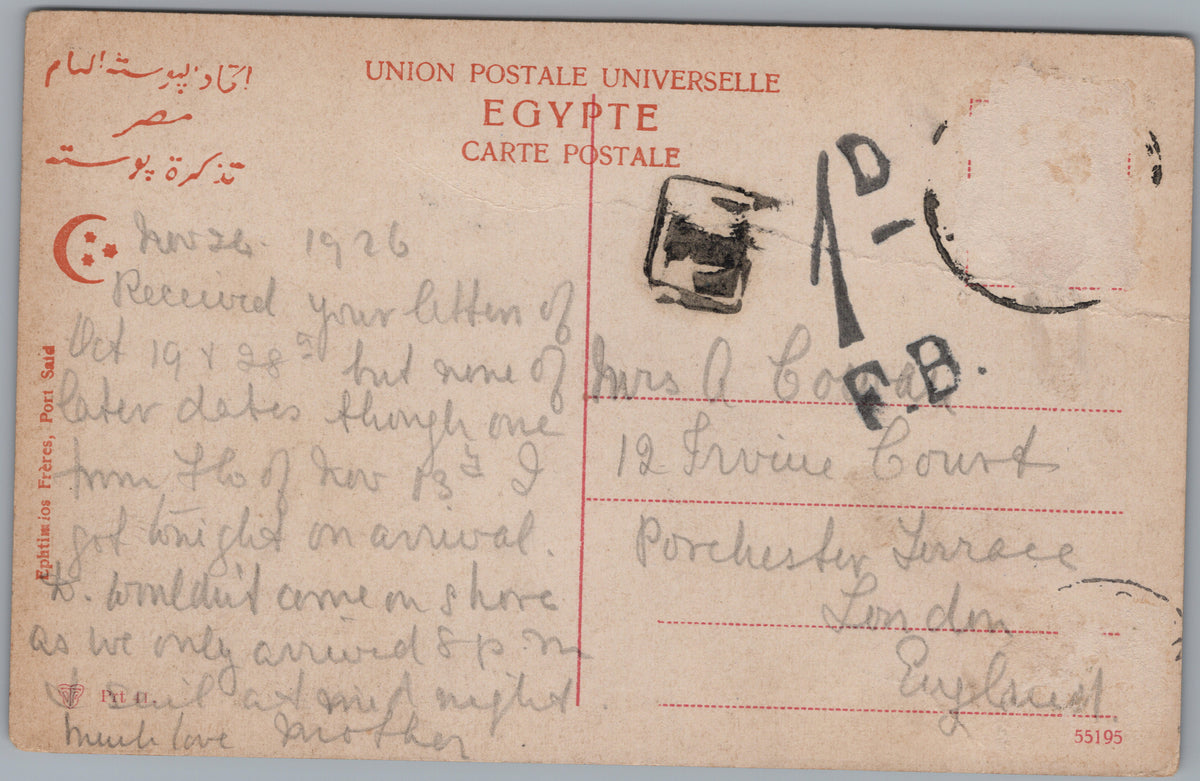 اتحاد پوستة العام
مصر
تذكرة پوستة
UNION POSTALE UNIVERSELLE
EGYPTE
CARTE POSTALE
Nov 26 1926
Received your letters of
Oct 19 & 28 but none of
later dates though one
from Flo of Nov 13 I
got tonight on arrival.
D. wouldn't come on shore
as we only arrived 8 p.m
& sail at mid night.
Much love Mother
Ephtimios Frères, Port Said
Prt
1D
F.B.
Mrs A
12 Irvine Court
Porchester Terrace
London
England.
55195